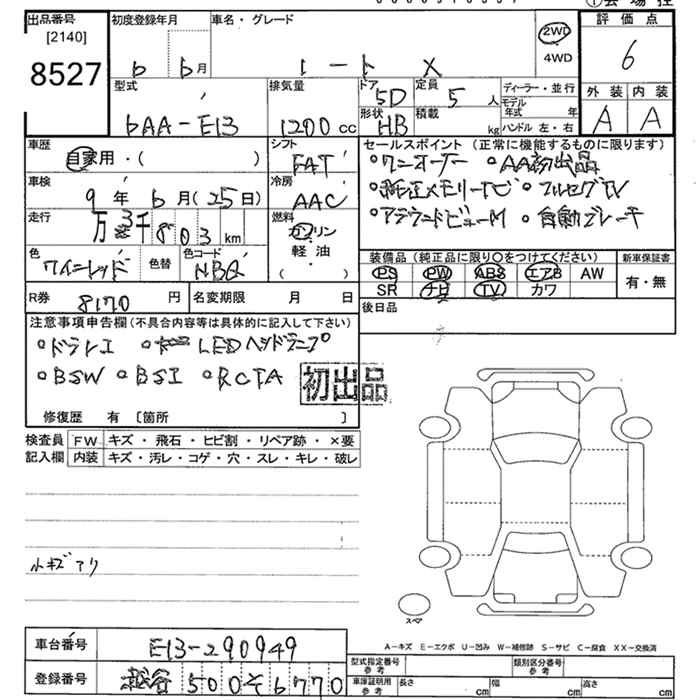 出品番号
[2140]
8527
初度登録年月
6 6月
車名・グレード
ノート X
2WD
4WD
評価点
6
外装 内装
A A
型式
6AA-E13
排気量
1200cc
ドア
5D
形状
HB
定員
5人
積載
kg
ディーラー・並行
モデル
年式 年
ハンドル 左・右
車歴
自家用・( )
シフト
FAT
セールスポイント(正常に機能するものに限ります)
○ワンオーナー ○AA初出品
○純正メモリーナビ ○フルセグTV
○アラウンドビューM ○自動ブレーキ
車検
9年6月(25日)
冷房
AAC
走行
万3千803km
燃料
ガソリン
軽油
( ・ )
色
ワインレッド
色替
色コード
NBQ
装備品(純正品に限り○をつけてください)
新車保証書
PS PW ABS エアB AW
SR ナビ TV カワ
有・無
R券
8170円
名変期限 月 日
後日品
注意事項申告欄(不具合内容等は具体的に記入して下さい)
○ドラレコ ○LEDヘッドランプ
○BSW ○BSI ○RCTA
初出品
修復歴 有 [箇所 ]
検査員 FW キズ・飛石・ヒビ割・リペア跡・×要
記入欄 内装 キズ・汚レ・コゲ・穴・スレ・キレ・破レ
小キズアリ
スペア
A-キズ E-エクボ U-凹み W-補修跡 S-サビ C-腐食 XX-交換済
車台番号
E13-290949
登録番号
越谷 500 そ 6770
型式指定番号
参考
類別区分番号
参考
車庫証明用
参考
長さ cm
幅 cm
高さ cm